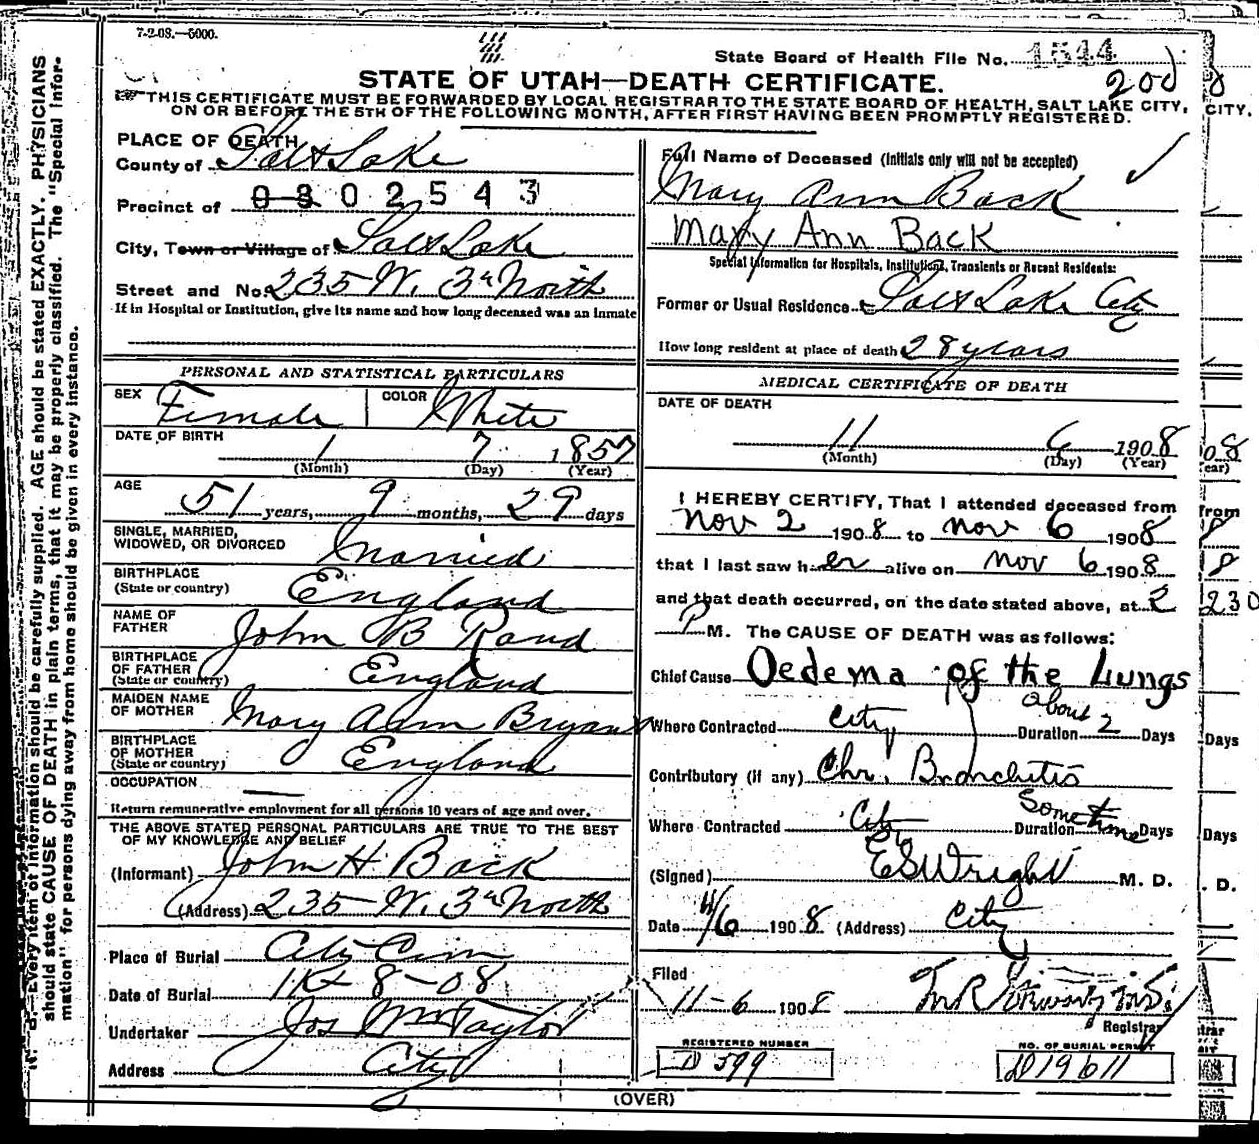 7-2-08.—5000.
State Board of Health File No. 1544
STATE OF UTAH—DEATH CERTIFICATE. 200
THIS CERTIFICATE MUST BE FORWARDED BY LOCAL REGISTRAR TO THE STATE BOARD OF HEALTH, SALT LAKE CITY, CITY,
ON OR BEFORE THE 5TH OF THE FOLLOWING MONTH, AFTER FIRST HAVING BEEN PROMPTLY REGISTERED.
N. B. Every item of information should be carefully supplied. AGE should be stated EXACTLY. PHYSICIANS
should state CAUSE OF DEATH in plain terms, that it may be properly classified. The "Special Infor-
mation" for persons dying away from home should be given in every instance.
PLACE OF DEATH
County of Salt Lake
Precinct of 0 3 0 2 5 4 3
City, Town or Village of Salt Lake
Street and No. 235 W. 3rd North
If in Hospital or Institution, give its name and how long deceased was an inmate
PERSONAL AND STATISTICAL PARTICULARS
SEX Female COLOR White
DATE OF BIRTH 1 7 1857
(Month) (Day) (Year)
AGE 51 years, 9 months, 29 days
SINGLE, MARRIED,
WIDOWED, OR DIVORCED Married
BIRTHPLACE
(State or country) England
NAME OF
FATHER John B Rand
BIRTHPLACE
OF FATHER
(State or country) England
MAIDEN NAME
OF MOTHER Mary Ann Bryant
BIRTHPLACE
OF MOTHER
(State or country) England
OCCUPATION
Return remunerative employment for all persons 10 years of age and over.
THE ABOVE STATED PERSONAL PARTICULARS ARE TRUE TO THE BEST
OF MY KNOWLEDGE AND BELIEF
(Informant) John H. Back
(Address) 235 W. 3rd North
Place of Burial City Cem
Date of Burial 11-8-08
Undertaker Jos Wm Taylor
Address City
Full Name of Deceased (Initials only will not be accepted)
Mary Ann Back
Mary Ann Back
Special Information for Hospitals, Institutions, Transients or Recent Residents:
Former or Usual Residence Salt Lake City
How long resident at place of death 28 years
MEDICAL CERTIFICATE OF DEATH
DATE OF DEATH
11 6 1908 08
(Month) (Day) (Year) ear)
I HEREBY CERTIFY, That I attended deceased from from
Nov 2 1908 to Nov 6 1908 8
that I last saw her alive on Nov 6 1908 8
and that death occurred, on the date stated above, at 2 230
P M. The CAUSE OF DEATH was as follows:
Chief Cause Oedema of the Lungs
Where Contracted City Duration about 2 Days Days
Contributory (if any) Chr. Bronchitis
Where Contracted City Duration Sometime Days Days
(Signed) E S Wright M. D. . D.
Date 11/6 1908 (Address) City
Filed
11-6 1908
Registrar trar
REGISTERED NUMBER
D 599
NO. OF BURIAL PERMIT
D19611
(OVER)